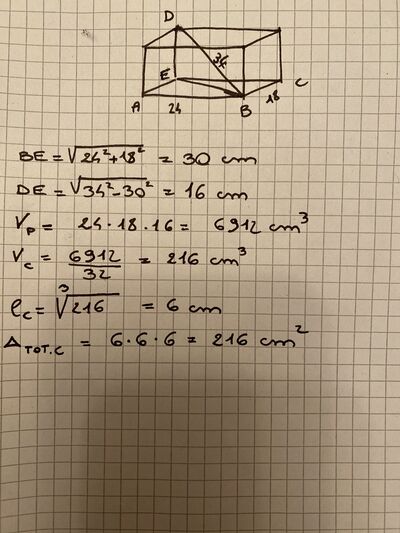 D
34
E
C
A
24
B
18
BE = √24²+18² = 30 cm
DE = √34²-30² = 16 cm
Vp = 24·18·16 = 6912 cm³
Vc = 6912/32 = 216 cm³
ℓc = ³√216 = 6 cm
ATOT.C = 6·6·6 = 216 cm²